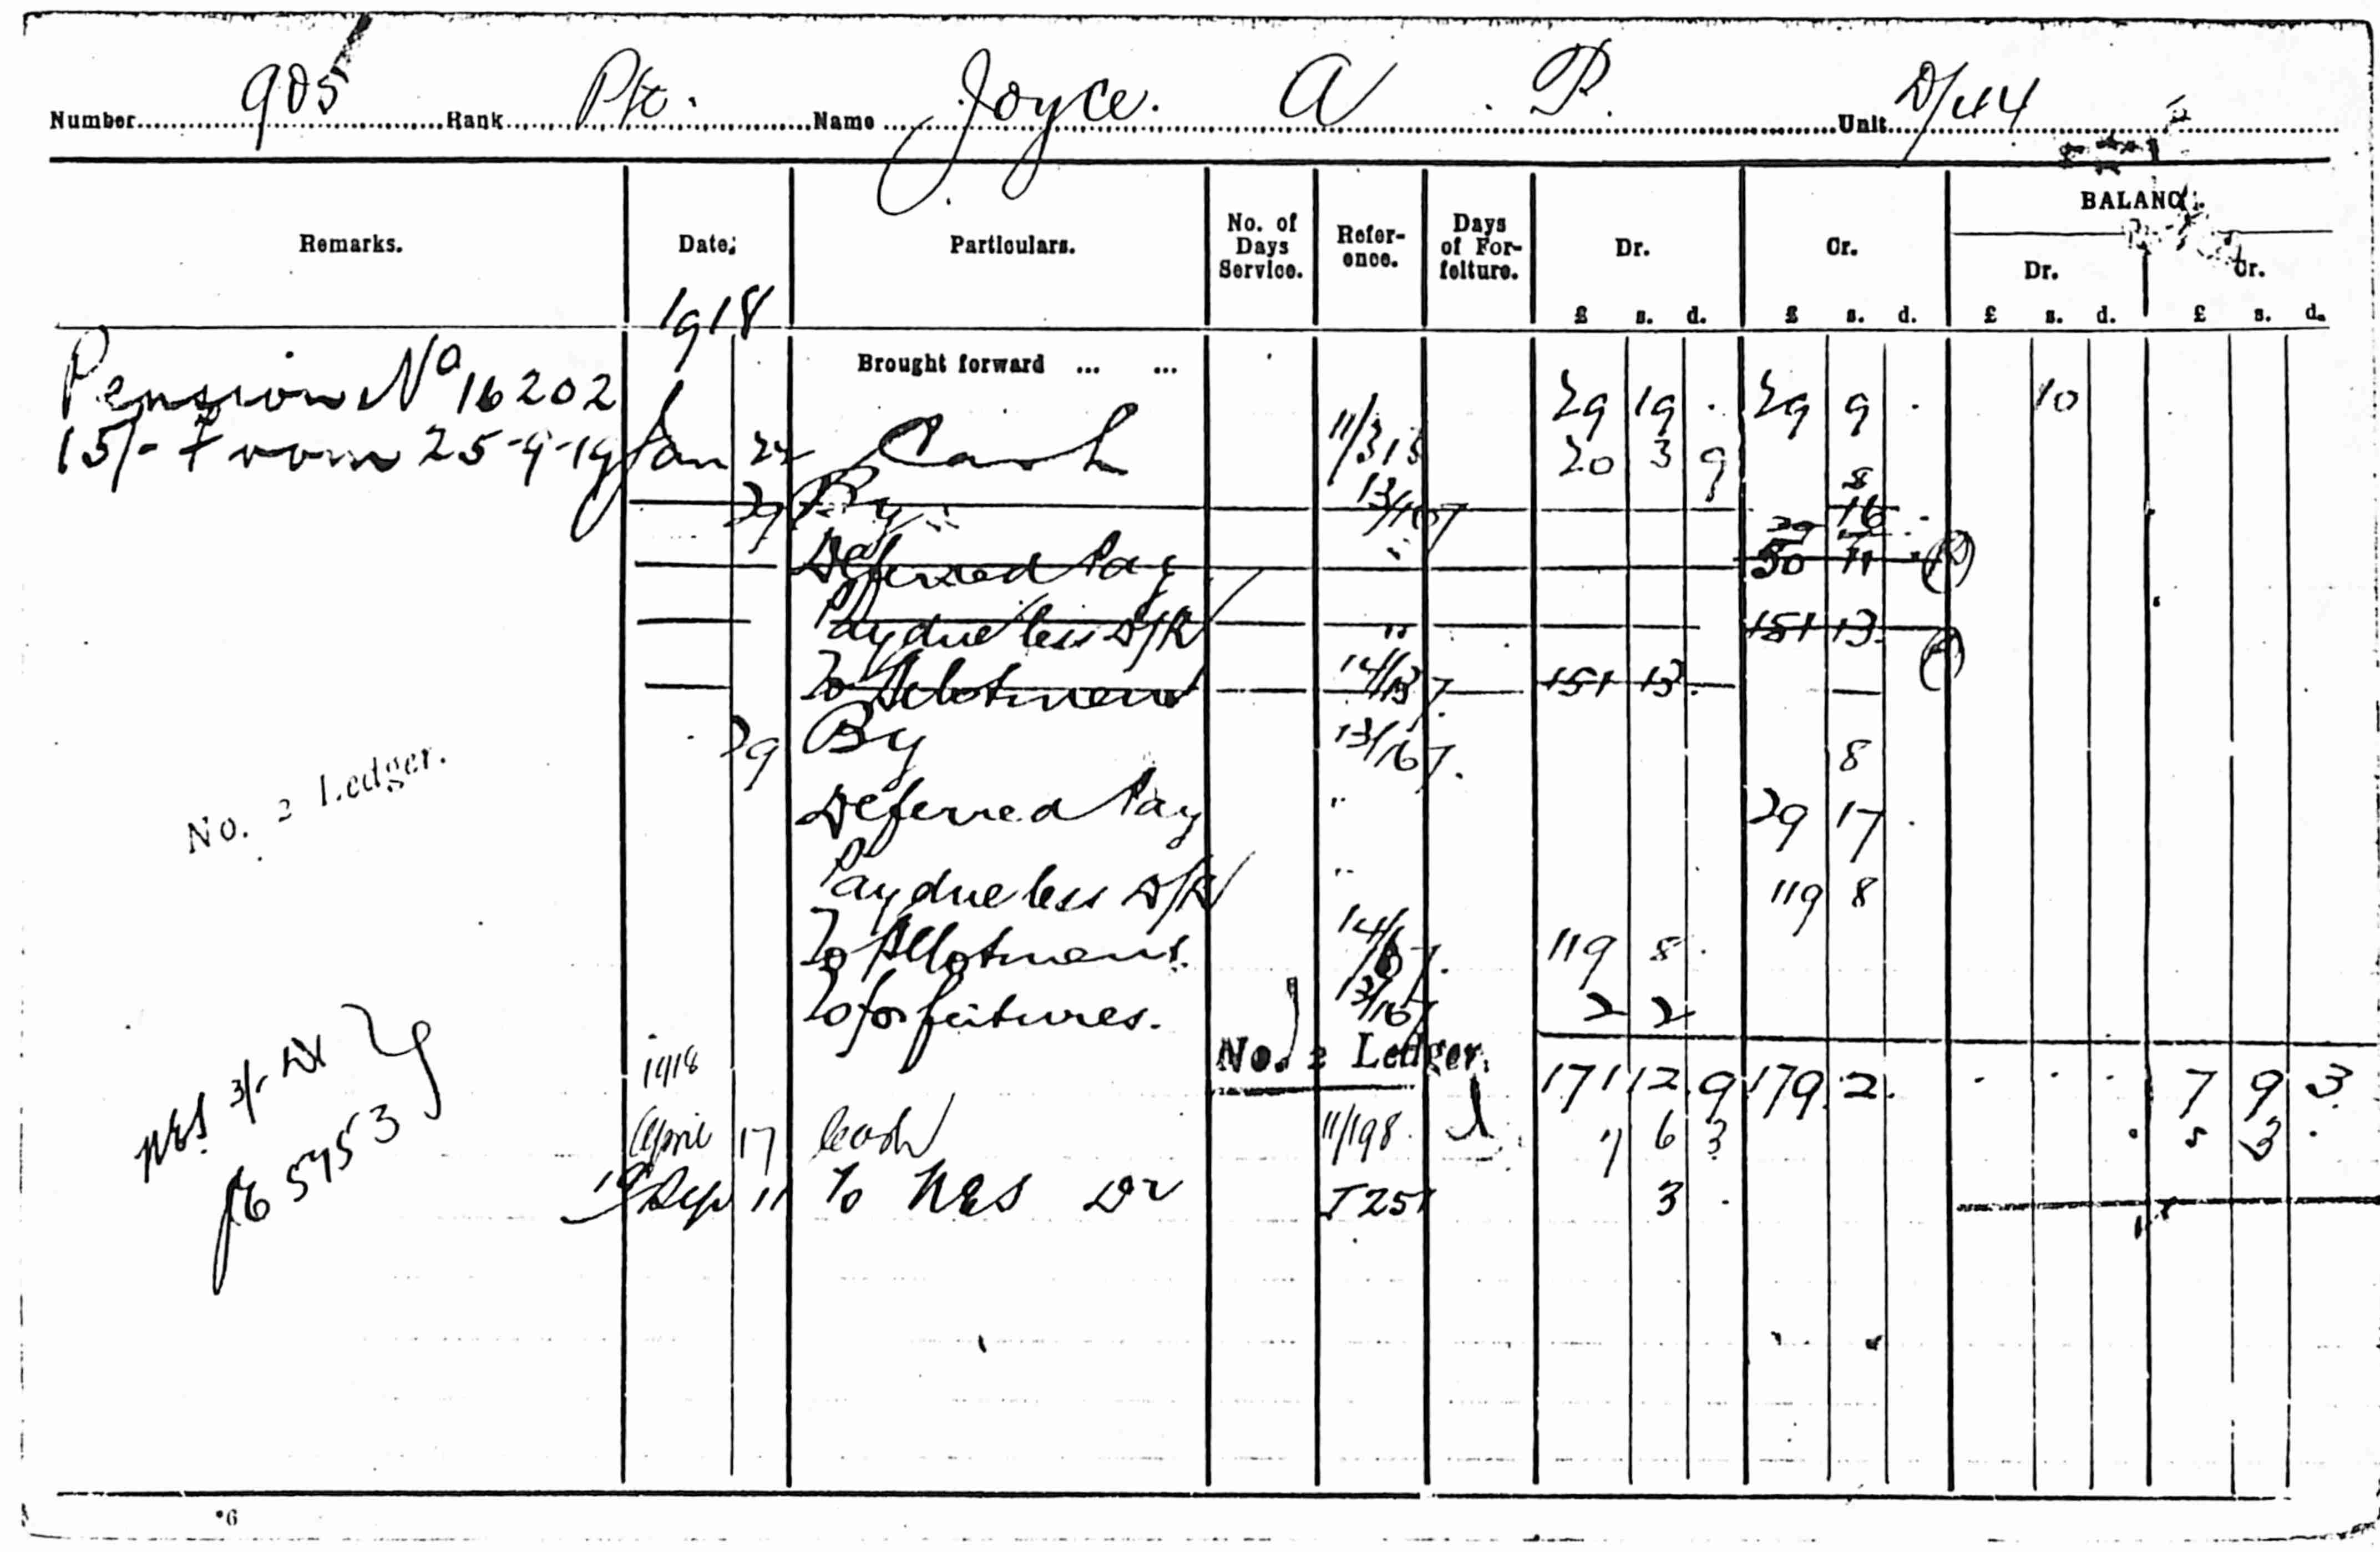 Number 905 Rank Pte. Name Joyce. A. P. Unit D/44
Remarks. Date. Particulars. No. of Days Service. Reference. Days of Forfeiture. Dr. Cr. BALANCE
Dr. Cr.
£ s. d. £ s. d. £ s. d. £ s. d.
1918
Brought forward ... ...
Pension No 16202 29 19 . 29 9 . 10
15/- From 25-9-19 Jan 22 Cash 11/313 20 3 9
29 By 13/167 8 16
Deferred Pay " 50 11 .
Pay due less D/R " 151 13
To Allotment 14/137 151 13 .
29 By 13/167. 8
Deferred Pay " 29 17 .
No. 2 Ledger.
Pay due less D/R " 119 8
To Allotment. 119 8 .
To forfeitures. 13/167 2 2
No. 2 Ledger.
1918 171 12 9 179 2 . . . . 7 9 3
April 17 Cash 11/198 7 6 3 . 3 .
NES 3/- Dr
19 Sep 11 To NES Dr J251 3 .
56 5953
*6